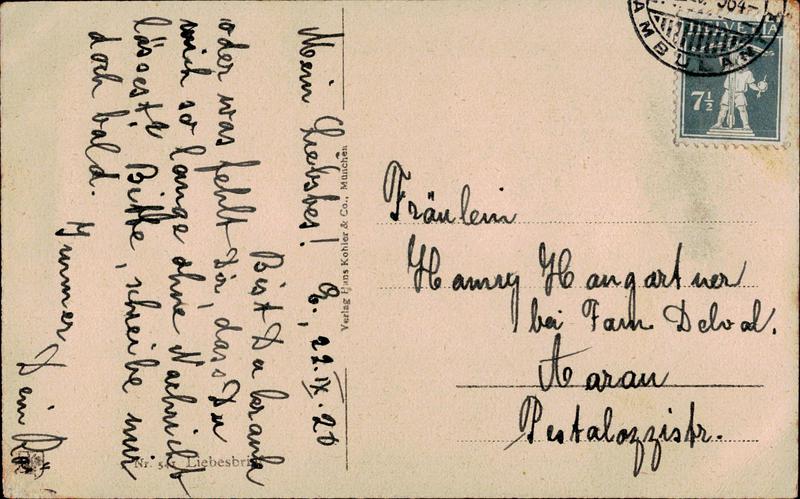 Mein Liebstes! B., 22.IX.20
Bist Du krank
oder was fehlt Dir, dass Du
mich so lange ohne Nachricht
lässest? Bitte, schreibe mir
doch bald.
Immer Dein
Verlag Hans Kohler & Co., München
Nr. Liebesbri
HELVETIA
7½
AMBULANT
Fräulein
Hanny Hangartner
bei Fam. Delval.
Aarau
Pestalozzistr.